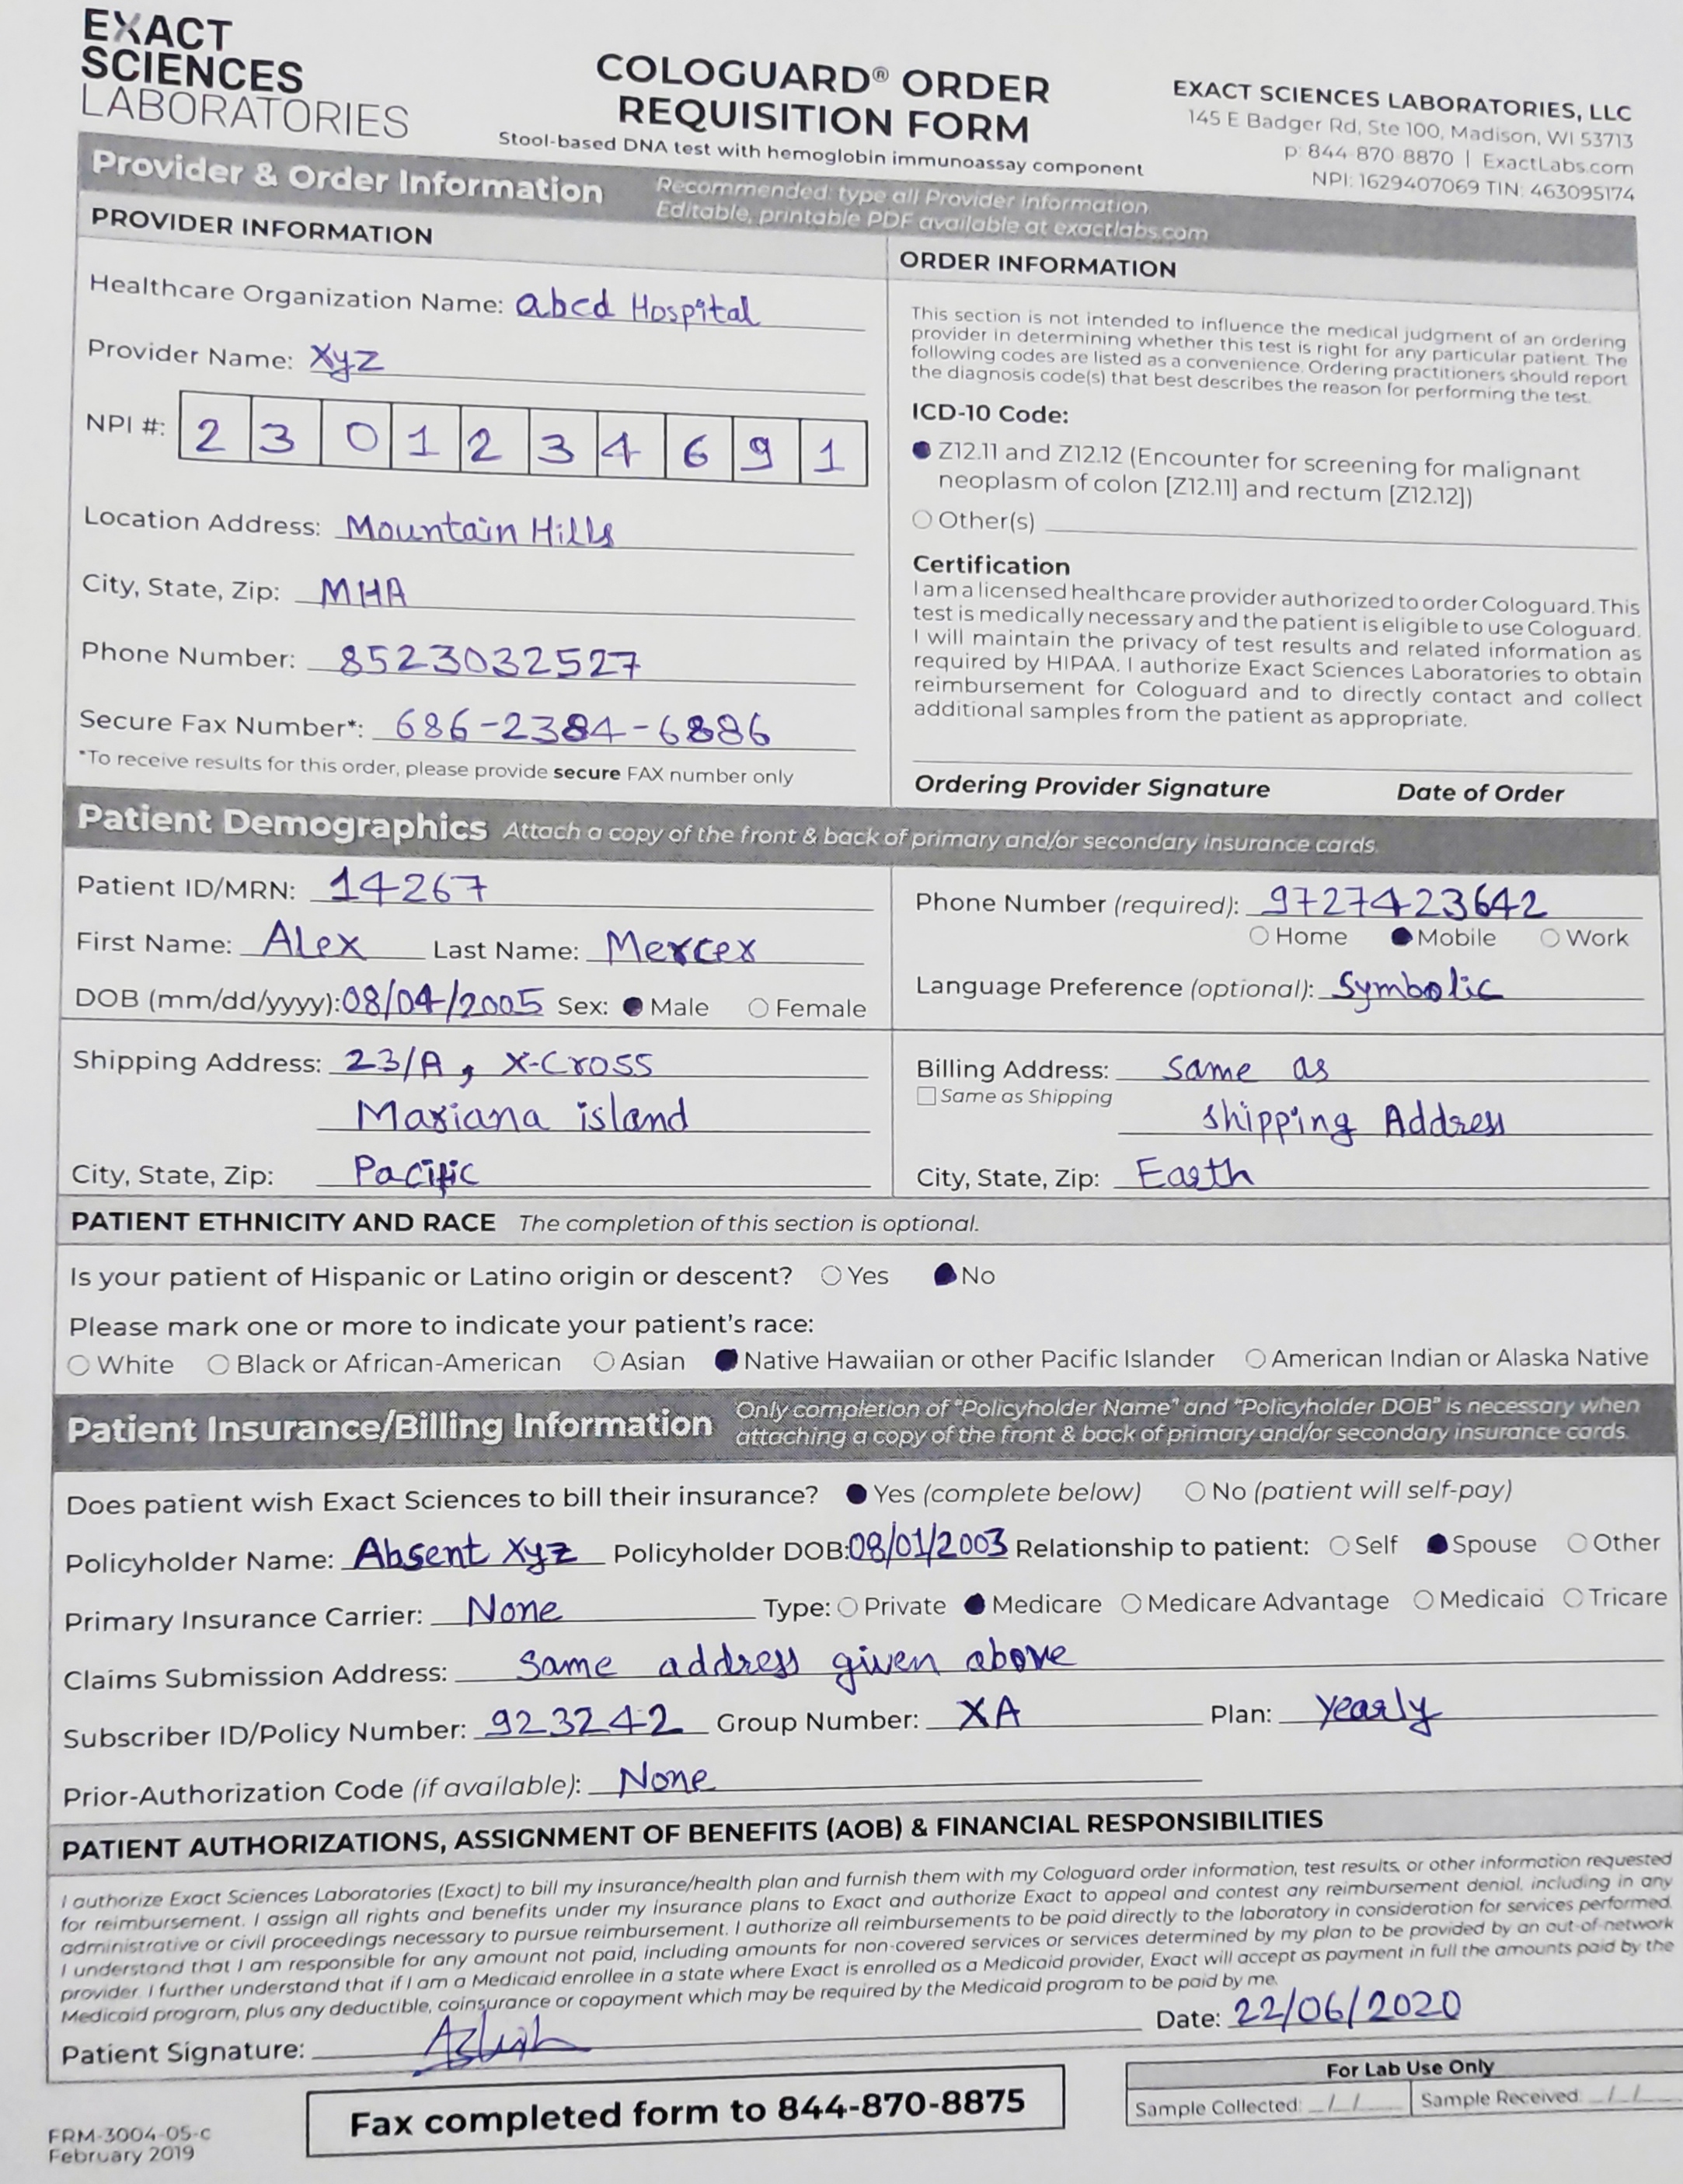 EXACT
SCIENCES
LABORATORIES
COLOGUARD® ORDER
REQUISITION FORM
Stool-based DNA test with hemoglobin immunoassay component
EXACT SCIENCES LABORATORIES, LLC
145 E Badger Rd, Ste 100, Madison, WI 53713
p: 844-870-8870 | ExactLabs.com
NPI: 1629407069 TIN: 463095174
Provider & Order Information
Recommended: type all Provider Information
Editable, printable PDF available at exactlabs.com
PROVIDER INFORMATION
Healthcare Organization Name: abcd Hospital
Provider Name: Xyz
NPI #: 2 3 0 1 2 3 4 6 9 1
Location Address: Mountain Hills
City, State, Zip: MHA
Phone Number: 8523032527
Secure Fax Number*: 686-2384-6886
*To receive results for this order, please provide secure FAX number only
ORDER INFORMATION
This section is not intended to influence the medical judgment of an ordering
provider in determining whether this test is right for any particular patient. The
following codes are listed as a convenience. Ordering practitioners should report
the diagnosis code(s) that best describes the reason for performing the test.
ICD-10 Code:
Z12.11 and Z12.12 (Encounter for screening for malignant
neoplasm of colon [Z12.11] and rectum [Z12.12])
Other(s)
Certification
I am a licensed healthcare provider authorized to order Cologuard. This
test is medically necessary and the patient is eligible to use Cologuard.
I will maintain the privacy of test results and related information as
required by HIPAA. I authorize Exact Sciences Laboratories to obtain
reimbursement for Cologuard and to directly contact and collect
additional samples from the patient as appropriate.
Ordering Provider Signature Date of Order
Patient Demographics Attach a copy of the front & back of primary and/or secondary insurance cards.
Patient ID/MRN: 14267
First Name: Alex Last Name: Mercer
DOB (mm/dd/yyyy): 08/04/2005 Sex: Male Female
Phone Number (required): 9727423642
Home Mobile Work
Language Preference (optional): Symbolic
Shipping Address: 23/A, X-Cross
Mariana island
City, State, Zip: Pacific
Billing Address: same as
Same as Shipping
shipping Address
City, State, Zip: Earth
PATIENT ETHNICITY AND RACE The completion of this section is optional.
Is your patient of Hispanic or Latino origin or descent? Yes No
Please mark one or more to indicate your patient's race:
White Black or African-American Asian Native Hawaiian or other Pacific Islander American Indian or Alaska Native
Patient Insurance/Billing Information
Only completion of "Policyholder Name" and "Policyholder DOB" is necessary when
attaching a copy of the front & back of primary and/or secondary insurance cards.
Does patient wish Exact Sciences to bill their insurance? Yes (complete below) No (patient will self-pay)
Policyholder Name: Absent Xyz Policyholder DOB: 08/01/2003 Relationship to patient: Self Spouse Other
Primary Insurance Carrier: None Type: Private Medicare Medicare Advantage Medicaid Tricare
Claims Submission Address: Same address given above
Subscriber ID/Policy Number: 923242 Group Number: XA Plan: Yearly
Prior-Authorization Code (if available): None
PATIENT AUTHORIZATIONS, ASSIGNMENT OF BENEFITS (AOB) & FINANCIAL RESPONSIBILITIES
I authorize Exact Sciences Laboratories (Exact) to bill my insurance/health plan and furnish them with my Cologuard order information, test results, or other information requested
for reimbursement. I assign all rights and benefits under my insurance plans to Exact and authorize Exact to appeal and contest any reimbursement denial, including in any
administrative or civil proceedings necessary to pursue reimbursement. I authorize all reimbursements to be paid directly to the laboratory in consideration for services performed.
I understand that I am responsible for any amount not paid, including amounts for non-covered services or services determined by my plan to be provided by an out-of-network
provider. I further understand that if I am a Medicaid enrollee in a state where Exact is enrolled as a Medicaid provider, Exact will accept as payment in full the amounts paid by the
Medicaid program, plus any deductible, coinsurance or copayment which may be required by the Medicaid program to be paid by me.
Patient Signature:
Date: 22/06/2020
Fax completed form to 844-870-8875
For Lab Use Only
Sample Collected: / / Sample Received: / /
FRM-3004-05-c
February 2019